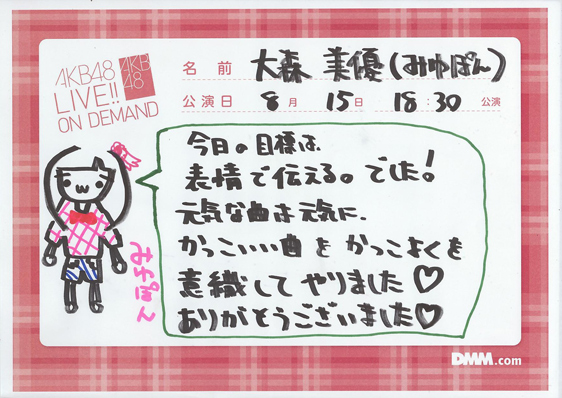 AKB48
LIVE!!
ON DEMAND
AKB
48
名前 大森美優(みゆぽん)
公演日 8月15日 18:30公演
今日の目標は
表情で伝える。でした!
元気な曲は元気に、
かっこいい曲をかっこよくを
意識してやりました♡
ありがとうございました♡
みゆぽん
DMM.com